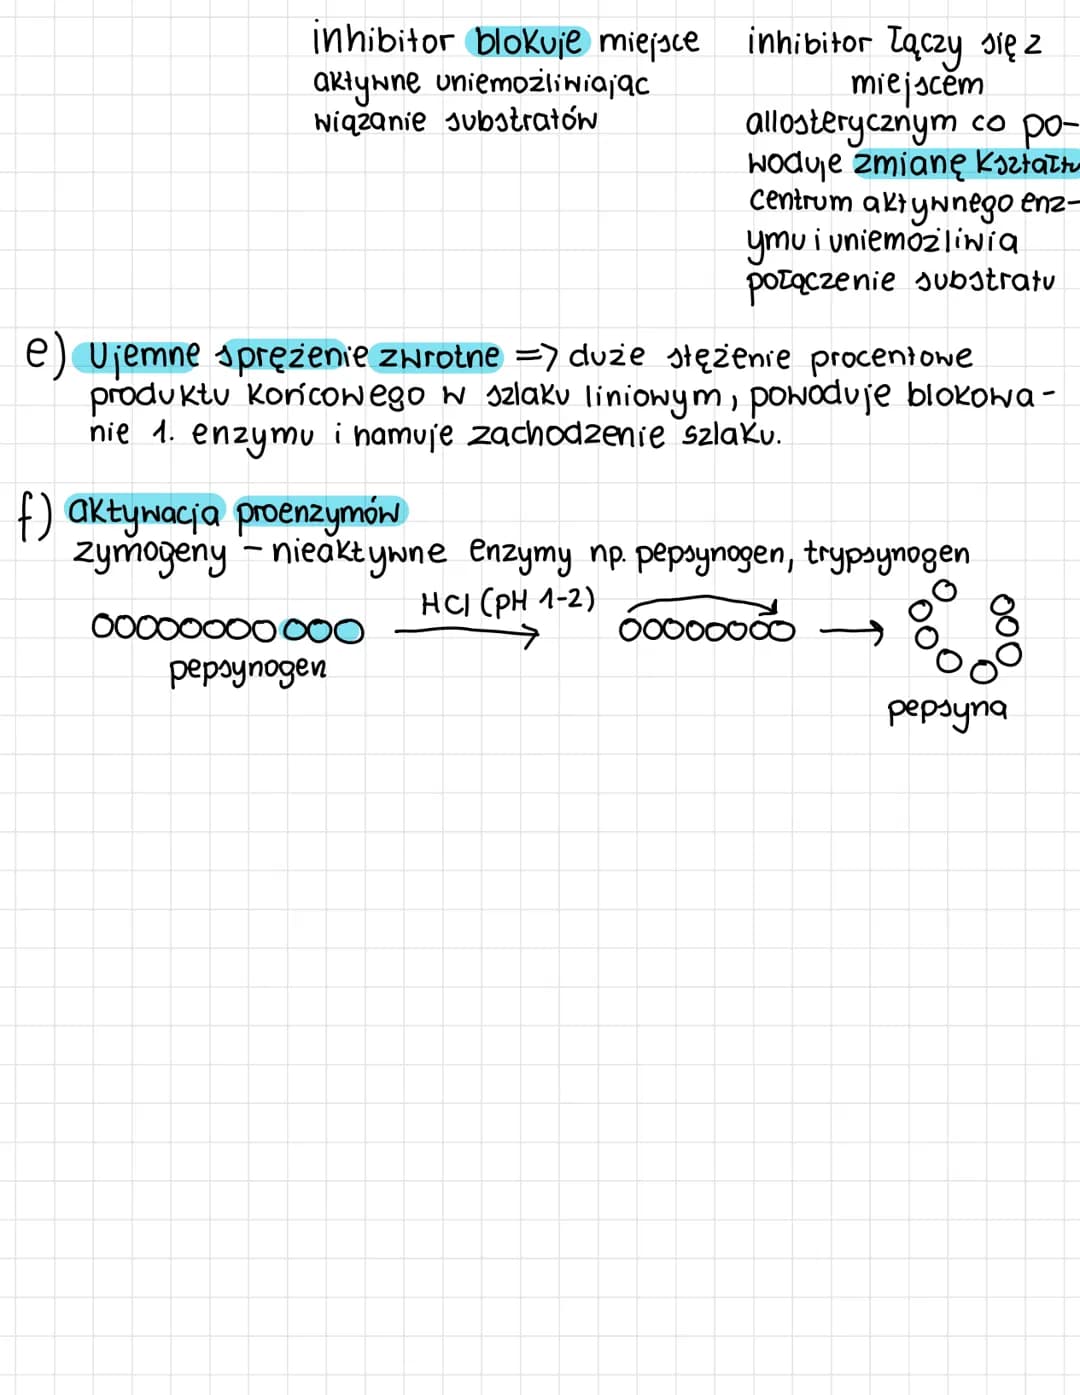 inhibitor blokuje miejsce
aktywne uniemożliwiając
wiązanie substratów
inhibitor łączy się z
miejscem
allosterycznym co po-
woduje zmianę kształtu
centrum aktywnego enz-
ymu i uniemożliwia
połączenie substratu
e) Ujemne sprężenie zwrotne => duże stężenie procentowe
produktu końcowego w szlaku liniowym, powoduje blokowa-
nie 1. enzymu i hamuje zachodzenie szlaku.
f) aktywacja proenzymów
zymogeny - nieaktywne enzymy np. pepsynogen, trypsynogen
HCl (pH 1-2)
pepsynogen
pepsyna